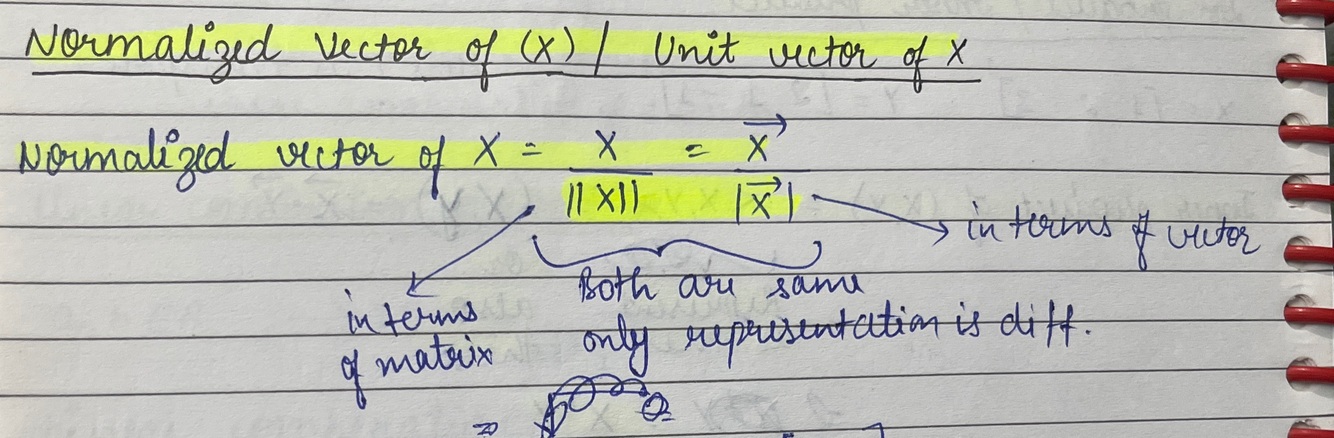 Normalized vector of (X) / Unit vector of X
Normalized vector of X = X / ||X|| = X⃗ / |X⃗|
in terms of vector
in terms of matrix
Both are same
only representation is diff.